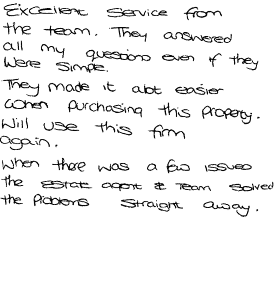 Excellent service from
the team. They answered
all my questions even if they
were simple.
They made it alot easier
when purchasing this property.
Will use this firm
again.
When there was a few issues
the estate agent & Team solved
the problems straight away.